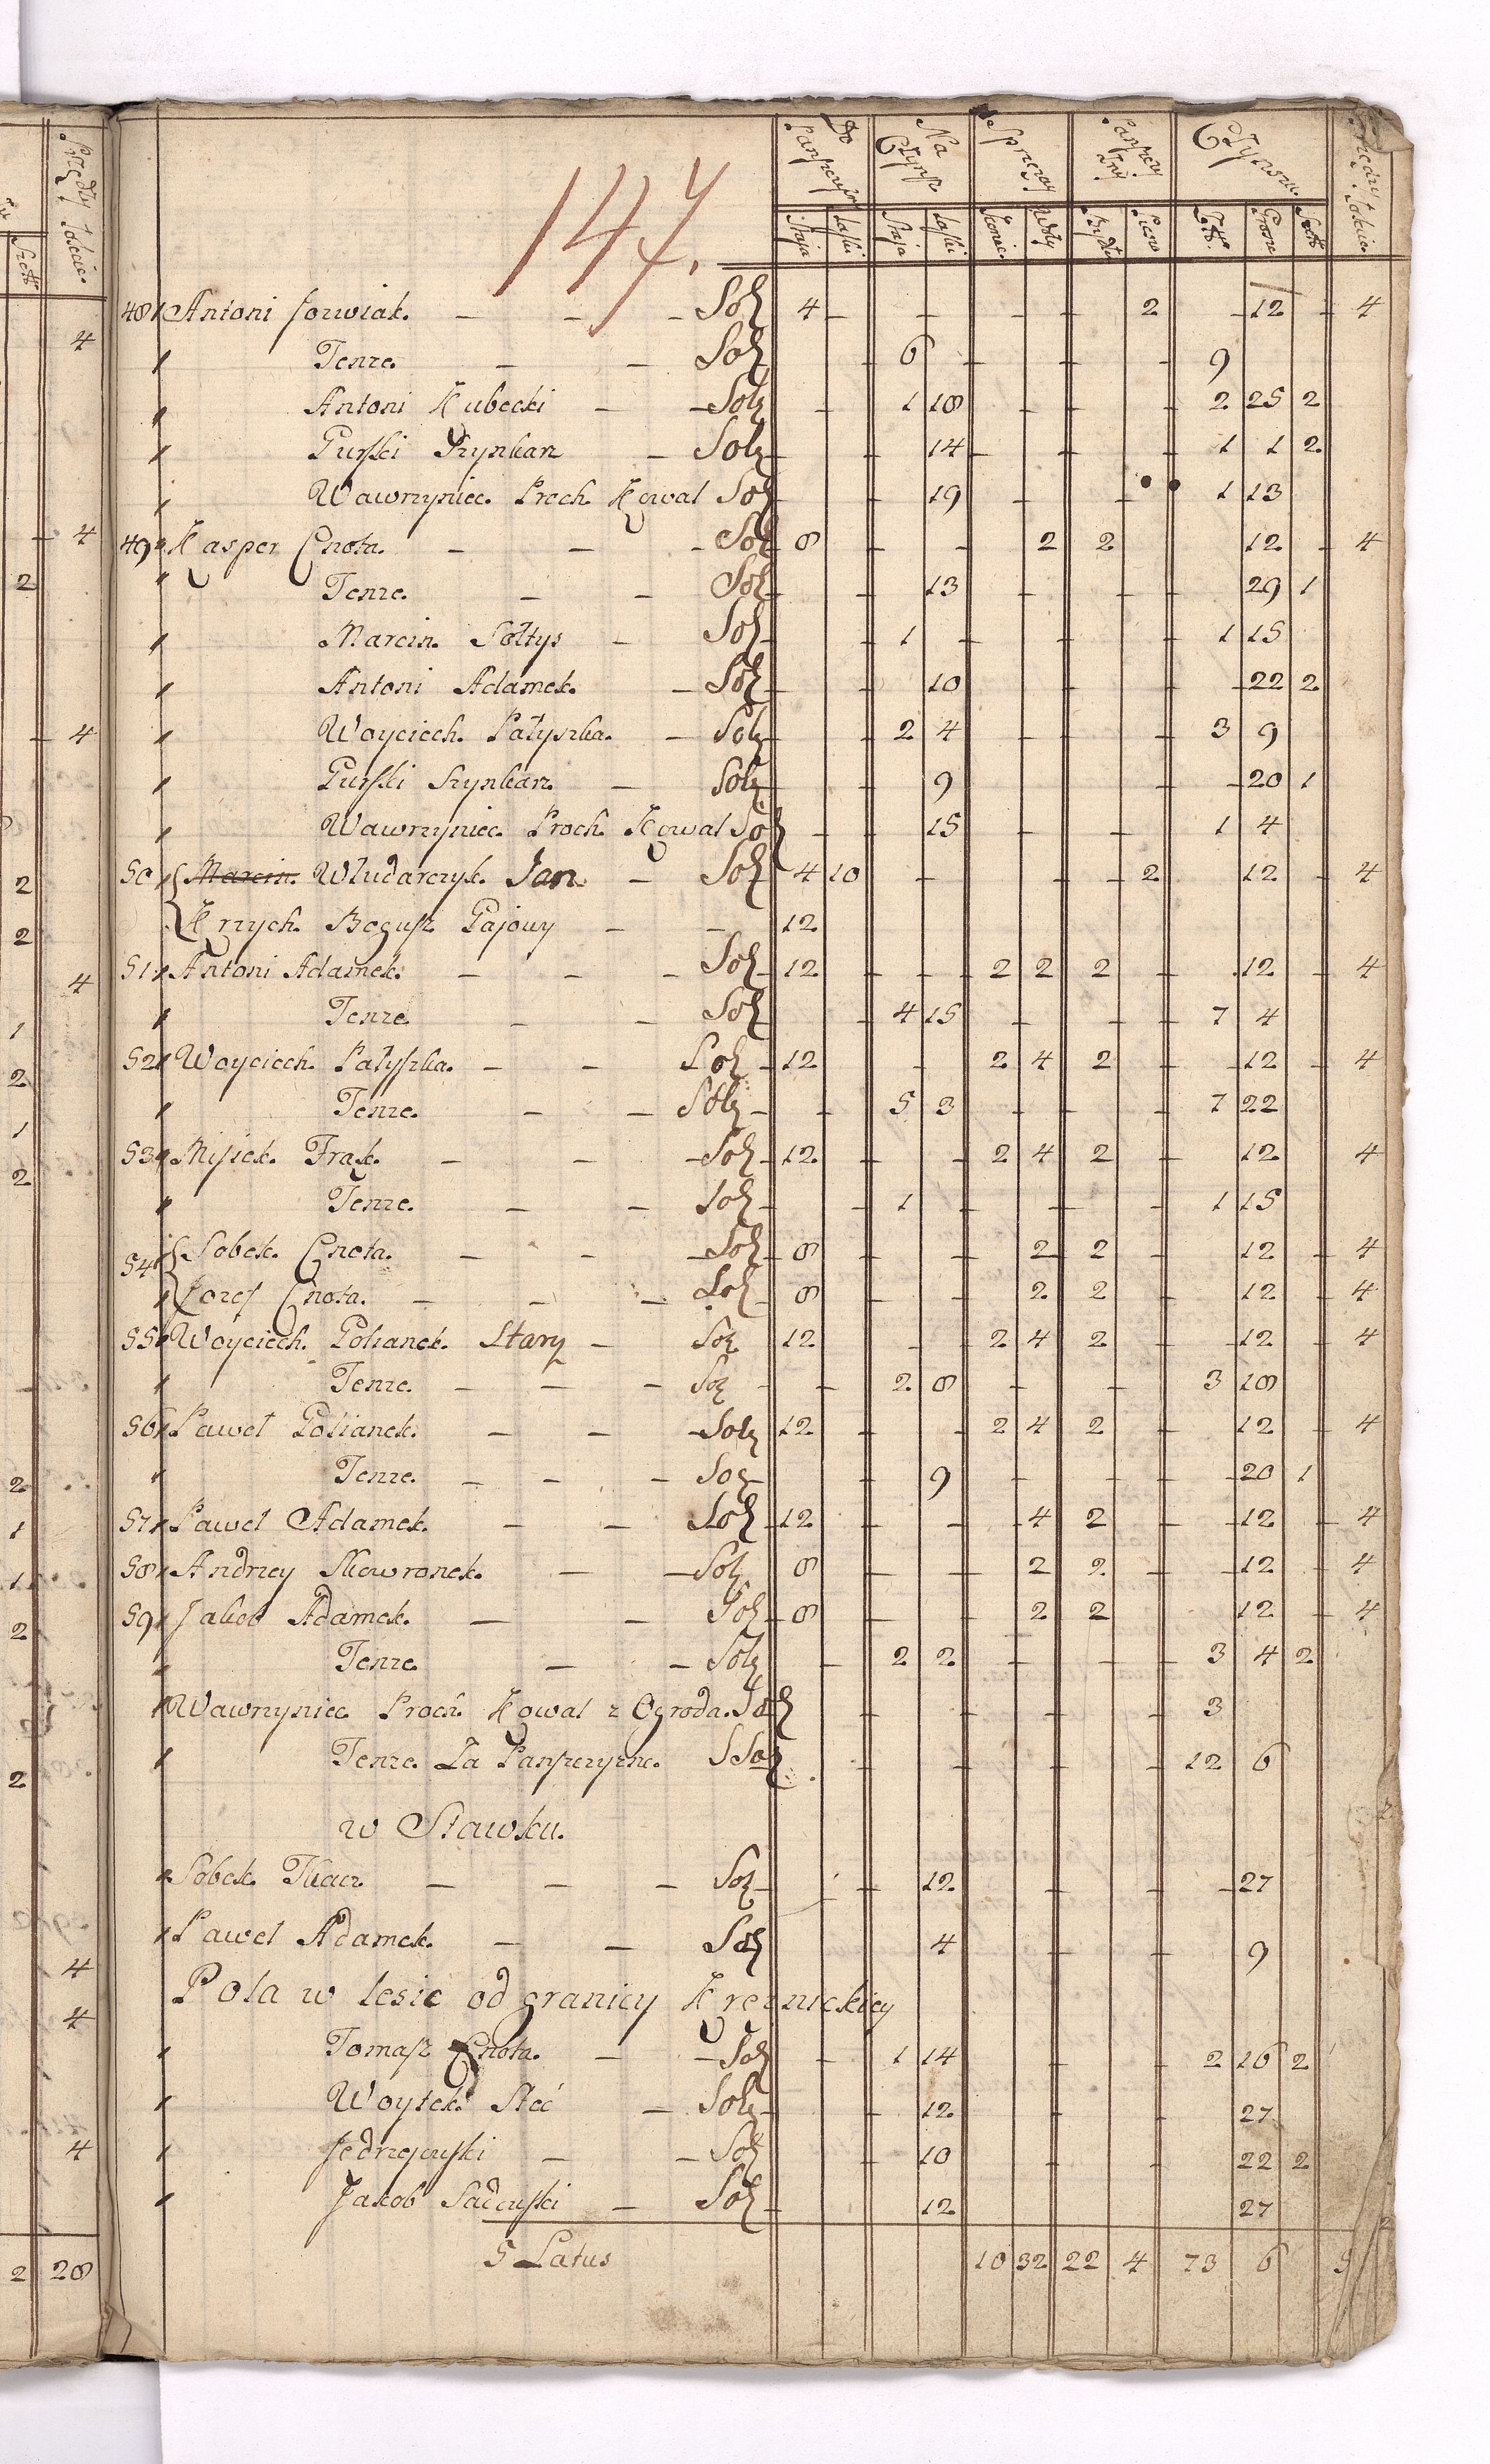 144.
Do Panszczyzn | Na Czynsz | Sprzęzay | Czynsz
Staja | Laski | Staja | Laski | Konie | Woły | Bydło | Pieszo | Grosze
48 Antoni Jozwiak. Sol 4 2 12 4
Tenze. Sol 6 9
Antoni Kubecki Sol 1 18 2 25 2
Gurski Szynkarz Sol 14 1 1 2
Wawrzyniec. Proch. Kowal Sol 19 1 13
49 Kasper Cnota. Sol 8 2 2 12 4
Tenze. Sol 13 29 1
Marcin. Sołtys Sol 1 1 15
Antoni Adamek. Sol 10 22 2
Woyciech. Patyszka. Sol 2 4 3 9
Gurski Szynkarz. Sol 9 20 1
Wawrzyniec. Proch. Kowal Sol 15 1 4
50 Marcin. Wludarczyk. Jan Sol 4 10 2 12 4
Krzych. Bogusz Gajowy 12
51 Antoni Adamek. Sol 12 2 2 2 12 4
Tenze. Sol 4 15 7 4
52 Woyciech. Patyszka. Sol 12 2 4 2 12 4
Tenze. Sol 5 3 7 22
53 Misiek. Frak. Sol 12 2 4 2 12 4
Tenze. Sol 1 1 15
54 Sobek. Cnota. Sol 8 2 2 12 4
Jozef Cnota. Sol 8 2 2 12 4
55 Woyciech. Golianek. Stary Sol 12 2 4 2 12 4
Tenze. Sol 2 8 3 18
56 Paweł Golianek. Sol 12 2 4 2 12 4
Tenze. Sol 9 20 1
57 Paweł Adamek. Sol 12 4 2 12 4
58 Andrzey Skowronek. Sol 8 2 2 12 4
59 Jakob Adamek. Sol 8 2 2 12 4
Tenze Sol 2 2 3 4 2
Wawrzyniec Proch. Kowal z Ogroda. Sol 3
Tenze. Za Panszczyzne. Sol 12 6
w Stawku.
Sobek. Tkacz Sol 12 27
Paweł Adamek. Sol 4 9
Pola w lesie od granicy Kreznickiey
Tomasz Cnota. Sol 1 14 2 16 2
Woytek. Steć Sol 12 27
Jedrzejewski Sol 10 22 2
Jakob Sadowski Sol 12 27
5 Latus 10 32 22 4 73 6